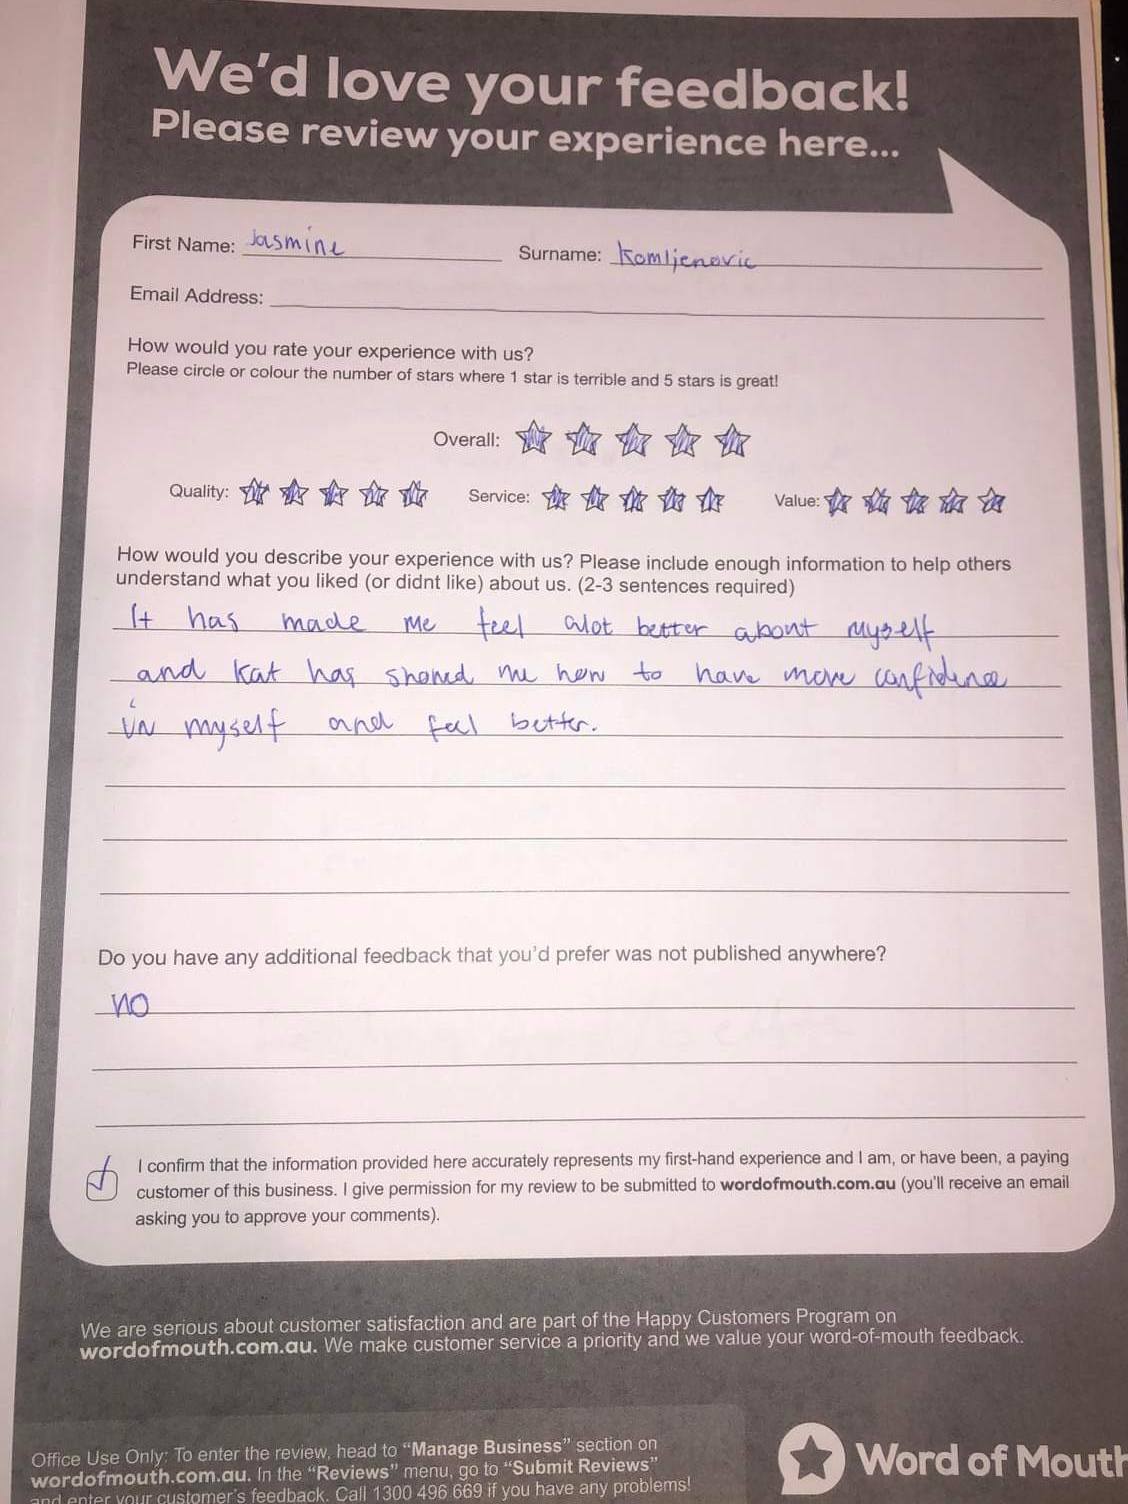 We'd love your feedback!
Please review your experience here...
First Name: Jasmine Surname: Komljenovic
Email Address:
How would you rate your experience with us?
Please circle or colour the number of stars where 1 star is terrible and 5 stars is great!
Overall:
Quality: Service: Value:
How would you describe your experience with us? Please include enough information to help others
understand what you liked (or didnt like) about us. (2-3 sentences required)
It has made me feel alot better about myself
and Kat has showed me how to have more confidence
in myself and feel better.
Do you have any additional feedback that you'd prefer was not published anywhere?
no
I confirm that the information provided here accurately represents my first-hand experience and I am, or have been, a paying
customer of this business. I give permission for my review to be submitted to wordofmouth.com.au (you'll receive an email
asking you to approve your comments).
We are serious about customer satisfaction and are part of the Happy Customers Program on
wordofmouth.com.au. We make customer service a priority and we value your word-of-mouth feedback.
Office Use Only: To enter the review, head to "Manage Business" section on
wordofmouth.com.au. In the "Reviews" menu, go to "Submit Reviews"
and enter your customer's feedback. Call 1300 496 669 if you have any problems!
Word of Mouth